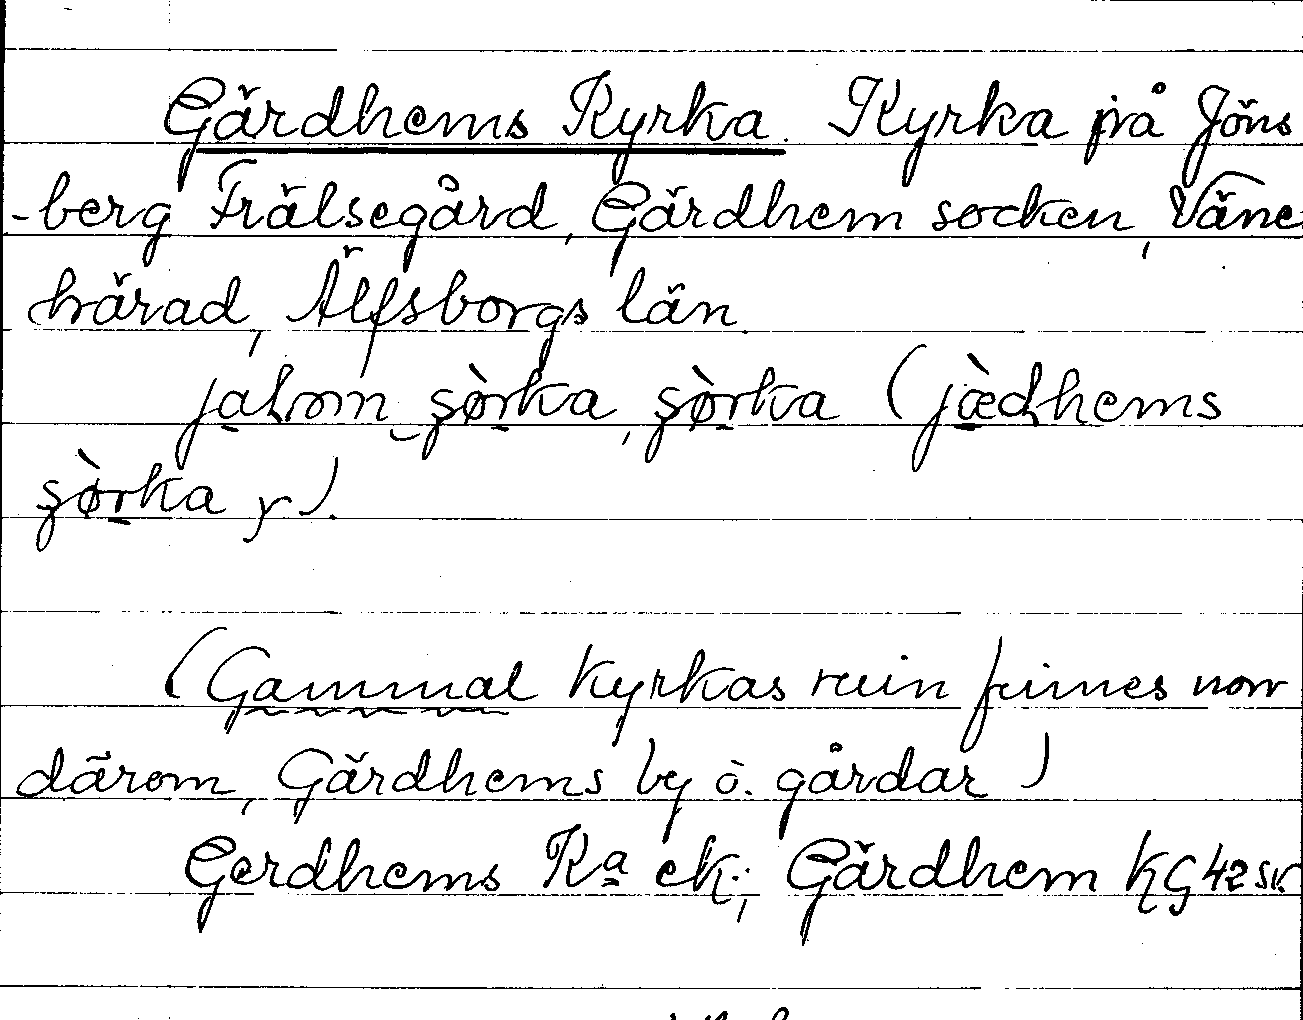 Gärdhems Kyrka. Kyrka på Jöns
-berg Frälsegård, Gärdhem socken, Väne
härad, Älfsborgs län.
jalrom şòrka, şòrka (jædhems
şòrka y).
(Gammal kyrkas ruin finnes norr
därom, Gärdhems by ö. gårdar)
Gerdhems Ka ek.; Gärdhem KG 42 sv.